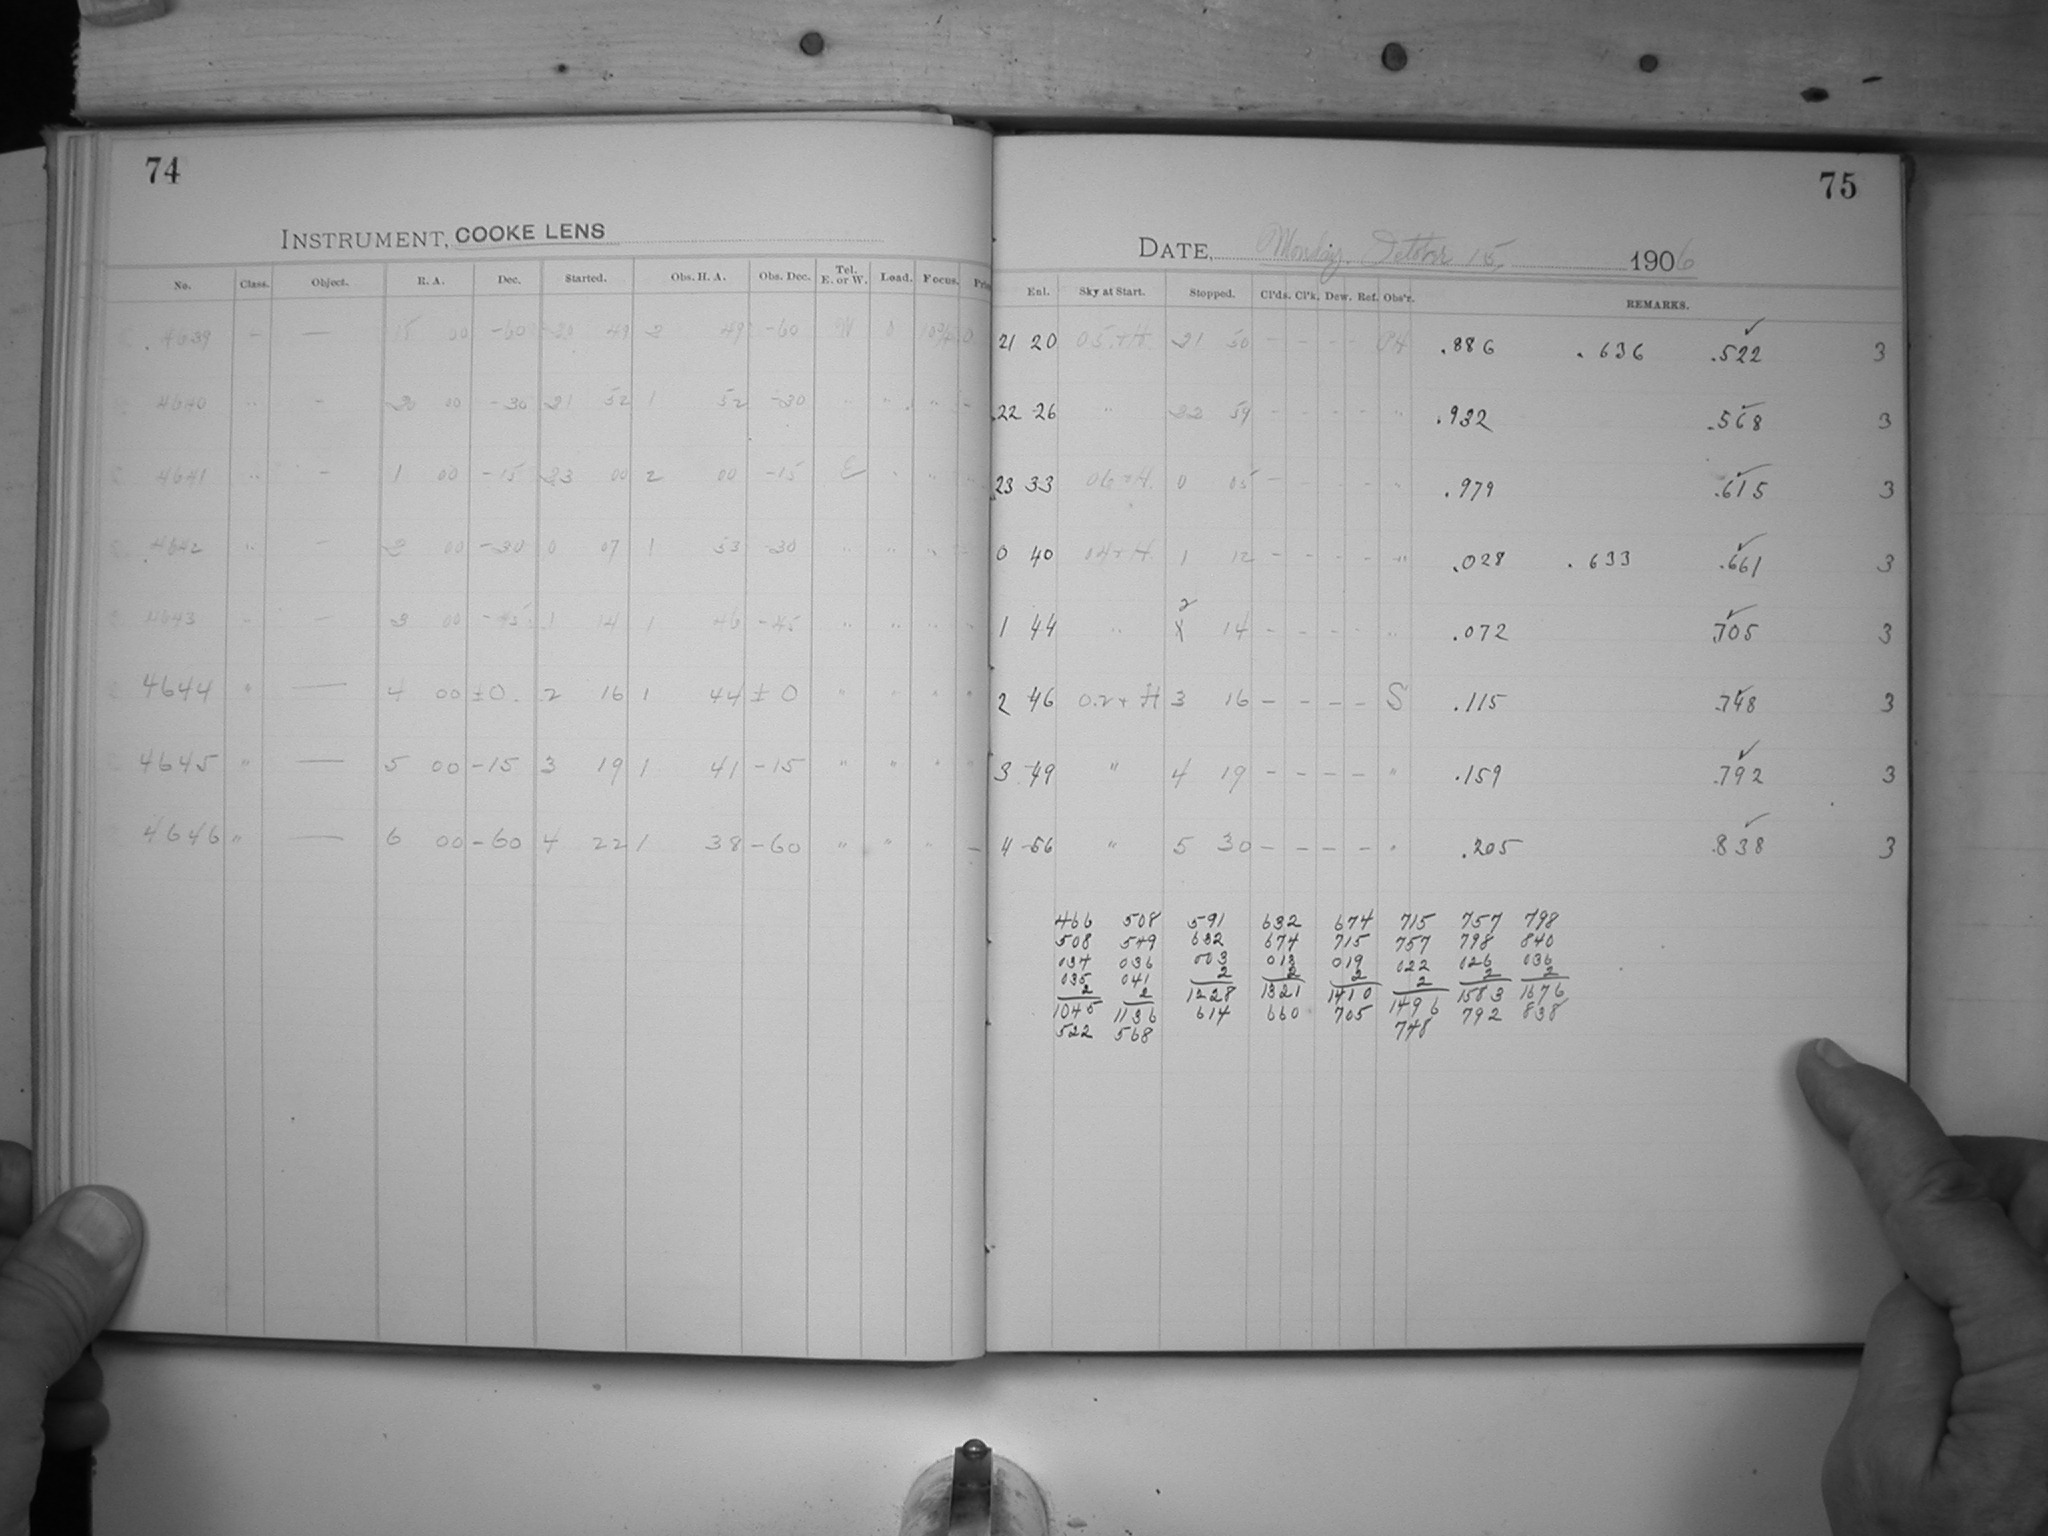 74
INSTRUMENT, COOKE LENS
No. Class. Object. R. A. Dec. Started. Obs. H. A. Obs. Dec. Tel. E. or W. Load. Focus.
4639 – — 00 -60 49 2 49 -60 W 0
4640 " – 00 -30 21 52 1 52 -30 " " " –
4641 " – 1 00 -15 23 00 2 00 -15 E " "
4642 " – 00 -30 0 07 1 53 -30 " " " –
4643 – – 3 00 -45 1 14 1 46 -45 " " "
4644 " — 4 00 ±0. 2 16 1 44 ±0 " " " "
4645 " — 5 00 -15 3 19 1 41 -15 " " " "
4646 " — 6 00 -60 4 22 1 38 -60 " " " –
75
DATE, Monday. October 15, 1906
Enl. Sky at Start. Stopped. Cl'ds. Cl'k. Dew. Ref. Obs'r. REMARKS.
21 20 21 50 – – – – .886 .636 .522 ✓ 3
22 26 " 22 59 – – – – " .932 .568 ✓ 3
23 33 0 05 – – – – " .979 .615 ✓ 3
0 40 1 12 – – – – " .028 .633 .661 ✓ 3
1 44 " 2 14 – – – – " .072 .705 ✓ 3
2 46 0.2+H 3 16 – – – – S .115 .748 ✓ 3
3 49 " 4 19 – – – – " .159 .792 ✓ 3
4 56 " 5 30 – – – – " .205 .838 ✓ 3
466 508 591 632 674 715 757 798
508 549 632 674 715 757 798 840
037 036 003 013 019 022 026 036
035 041 2 2 2 2 2 2
2 2 1228 1321 1410 1496 1583 1676
1045 1136 614 660 705 748 792 838
522 568